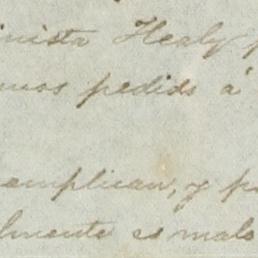 inista Healy p
mos pedido á
omplican, y p
lmente es malo